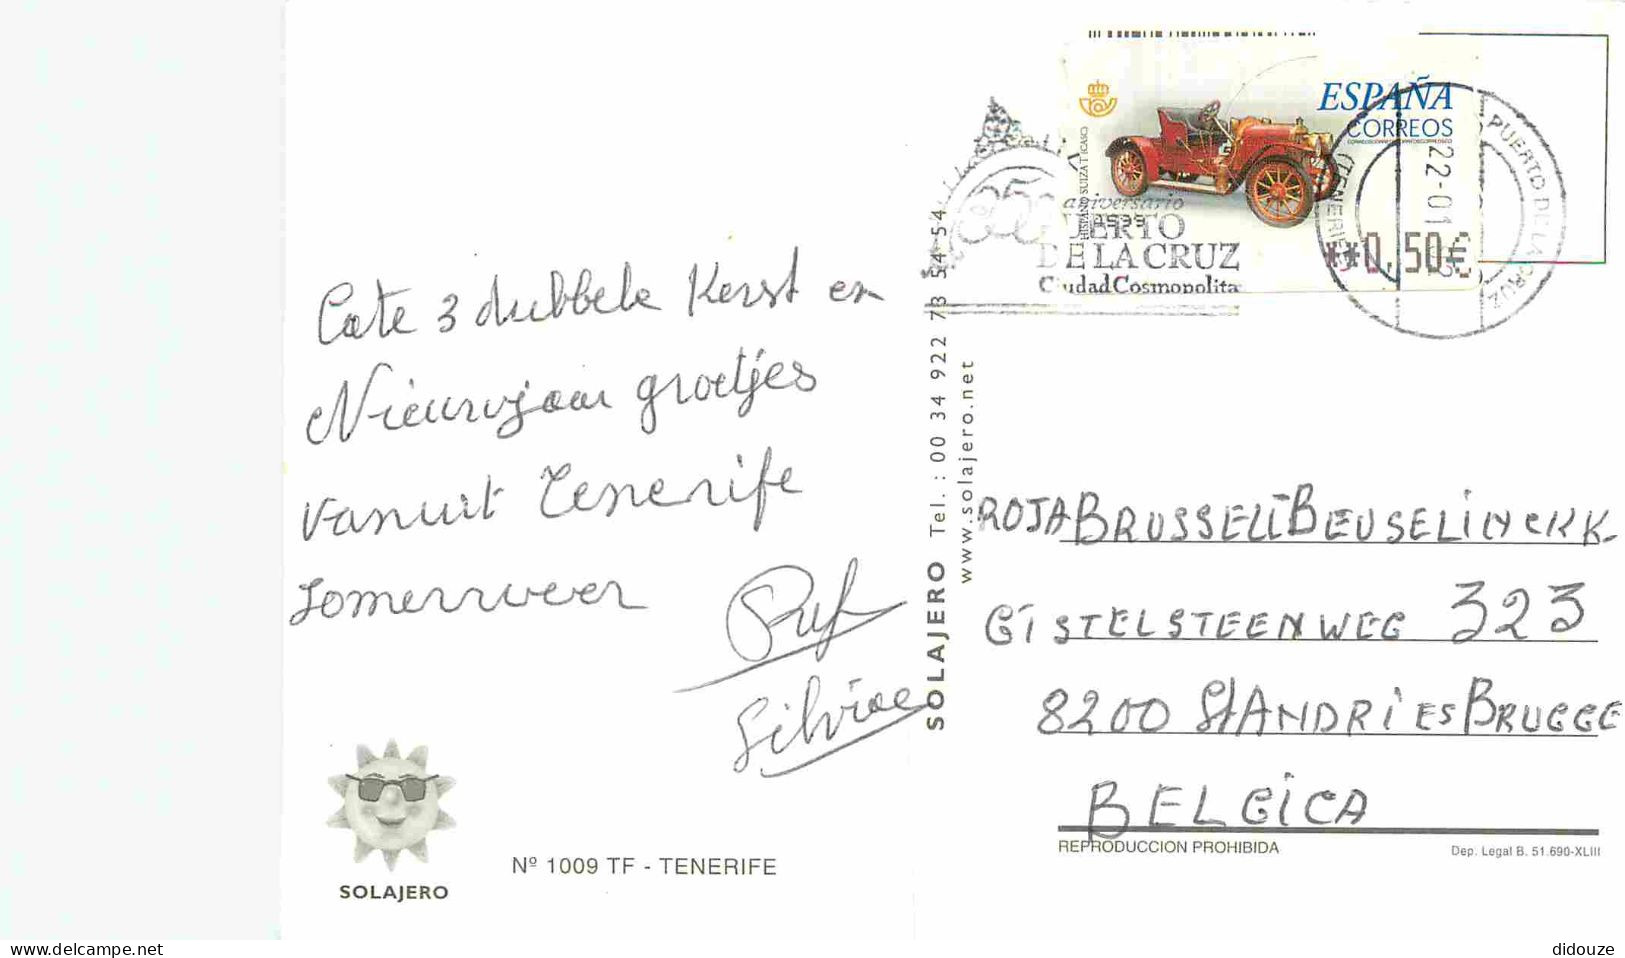 3 dubbele Kerst en
Nieuwjaar groetjes
vanuit Tenerife
zomerweer
Silvia
SOLAJERO
Nº 1009 TF - TENERIFE
SOLAJERO Tel.: 00 34 922 73 54 54
www.solajero.net
ESPAÑA
CORREOS
HISPANO SUIZA T (CASC)
**0,50€
aniversario
PUERTO
DE LA CRUZ
Ciudad Cosmopolita
PUERTO DE LA CRUZ
(TENERIFE)
22-01
ROJABRUSSELL-BEUSELINCKK-
GISTELSTEENWEG 323
8200 St ANDRIES BRUGGE
BELGICA
REPRODUCCION PROHIBIDA
Dep. Legal B. 51.690-XLIII
www.delcampe.net
didouze